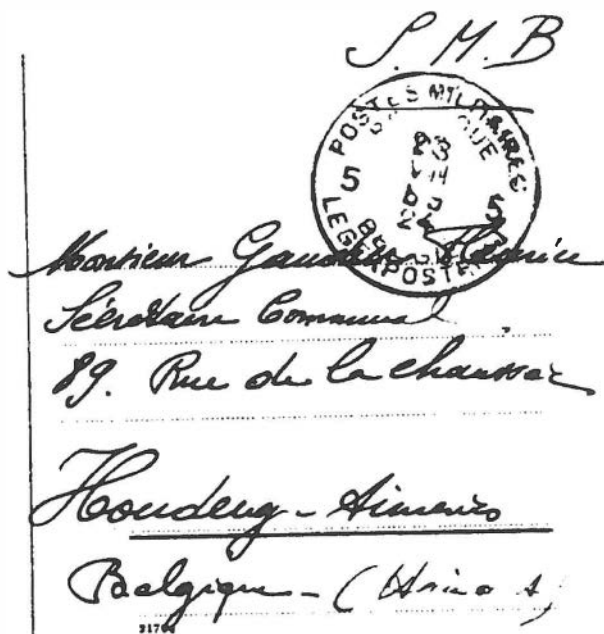 S. M. B
POSTES MILITAIRES
BELGIQUE
23
VIII
24
5 5
BELGIE
LEGERPOSTERIJ
Monsieur Maurice
Secrétaire Communal
89. Rue de la chaussée
Houdeng - Aimeries
Belgique - (Hainaut)